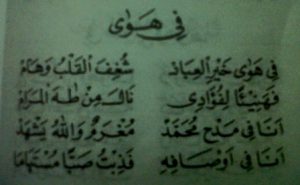 فِي هَوَى
فِي هَوَى خَيْرِ الْعِبَادْ شُغِفَ الْقَلْبُ وَهَامْ
فَهَنِيْئًا لِفُؤَادِى نَالَ مِنْ طٰهَ الْمَرَامْ
اَنَا فِي مَدْحِ مُحَمَّدْ مُغْرَمٌ وَاللّٰهُ يَشْهَدْ
اَنَا فِي اَوْصَافِهِ فَذُبْتُ صَبًّا مُسْتَهَامَا